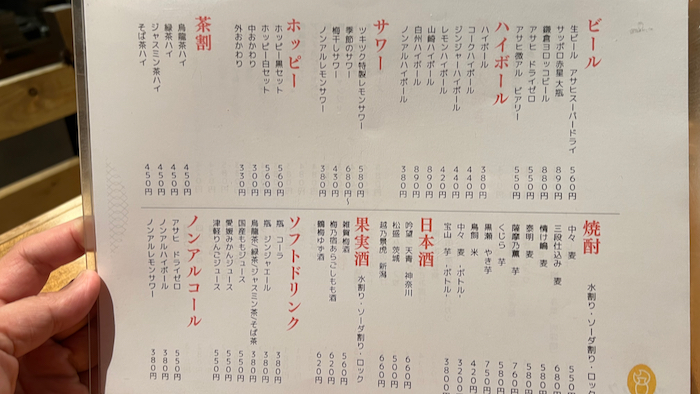 ビール
生ビール　アサヒスーパードライ 560円
サッポロ赤星 大瓶 890円
鎌倉ヨロッコビール 880円
アサヒ　ドライゼロ 550円
アサヒ微アル　ビアリー 550円
ハイボール
ハイボール 380円
コークハイボール 440円
ジンジャーハイボール 440円
レモンハイボール 420円
山崎ハイボール 890円
白州ハイボール 890円
ノンアルハイボール 380円
サワー
ツキツク特製レモンサワー 580円
季節のサワー 680円〜
梅干しサワー 430円
ノンアルレモンサワー 380円
ホッピー
ホッピー黒セット 560円
ホッピー白セット 560円
中おかわり 300円
外おかわり 330円
茶割
烏龍茶ハイ 450円
緑茶ハイ 450円
ジャスミン茶ハイ 450円
そば茶ハイ 450円
焼酎　水割り・ソーダ割り・ロック
中々　麦 550円
三段仕込み　麦 680円
情け嶋　麦 580円
泰明　麦 580円
薩摩乃薫　芋 760円
くじら　芋 580円
黒瀬　やき芋 750円
鳥飼　米 420円
中々　麦・ボトル・ 3200円
宝山　芋・ボトル・ 3800円
日本酒
吟望　天青　神奈川 660円
松盛　茨城 500円
越乃景虎　新潟 660円
果実酒　水割り・ソーダ割り・ロック
雑賀梅酒 560円
梅乃宿あらごしもも酒 620円
鶴梅ゆず酒 620円
ソフトドリンク
瓶　コーラ 380円
瓶　ジンジャエール 380円
烏龍茶/緑茶/ジャスミン茶/そば茶 380円
国産ももジュース 550円
愛媛みかんジュース 550円
津軽りんごジュース 550円
ノンアルコール
アサヒ　ドライゼロ 550円
ノンアルハイボール 380円
ノンアルレモンサワー 380円